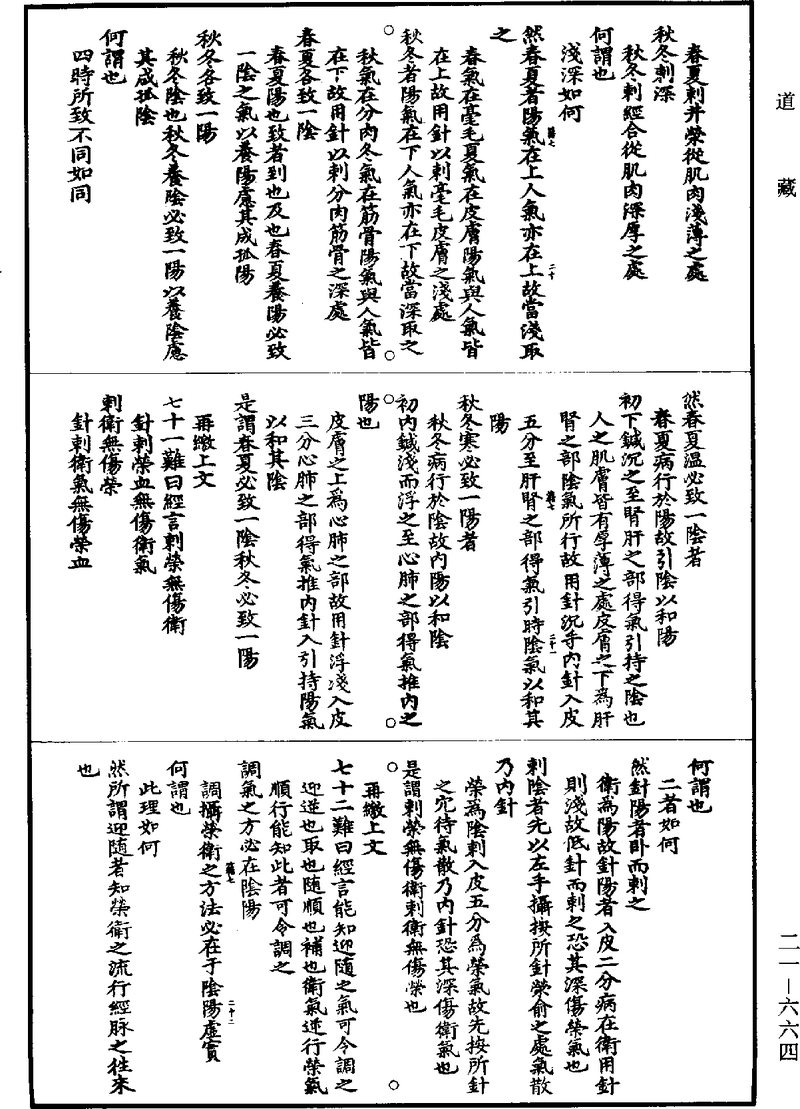 道藏
春夏刺井榮從肌肉淺薄之處
秋冬刺深
秋冬刺經合從肌肉深厚之處
何謂也
淺深如何
然春夏者陽氣在上人氣亦在上故當淺取
之
春氣在毫毛夏氣在皮膚陽氣與人氣皆
在上故用針以刺毫毛皮膚之淺處
秋冬者陽氣在下人氣亦在下故當深取之
秋氣在分肉冬氣在筋骨陽氣與人氣皆
在下故用針以刺分肉筋骨之深處
春夏各致一陰
春夏陽也致者到也及也春夏養陽必致
一陰之氣以養陽慮其成孤陽
秋冬各致一陽
秋冬陰也秋冬養陰必致一陽以養陰慮
其成孤陰
何謂也
四時所致不同如同
然春夏溫必致一陰者
春夏病行於陽故引陰以和陽
初下鍼沉之至腎肝之部得氣引持之陰也
人之肌膚皆有厚薄之處皮膚之下為肝
腎之部陰氣所行故用針沉手內針入皮
五分至肝腎之部得氣引時陰氣以和其
陽
秋冬寒必致一陽者
秋冬病行於陰故內陽以和陰
初內鍼淺而浮之至心肺之部得氣推內之
陽也
皮膚之上為心肺之部故用針浮淺入皮
三分心肺之部得氣推內針入引持陽氣
以和其陰
是謂春夏必致一陰秋冬必致一陽
再繳上文
七十一難曰經言刺榮無傷衛
針刺榮血無傷衛氣
刺衛無傷榮
針刺衛氣無傷榮血
何謂也
二者如何
然針陽者卧而刺之
衛為陽故針陽者入皮二分病在衛用針
則淺故低針而刺之恐其深傷榮氣也
刺陰者先以左手攝按所針榮俞之處氣散
乃內針
榮為陰刺入皮五分為榮氣故先按所針
之穴待氣散乃內針恐其深傷衛氣也
是謂刺榮無傷衛刺衛無傷榮也
再繳上文
七十二難曰經言能知迎隨之氣可令調之
迎逆也取也隨順也補也衛氣逆行榮氣
順行能知此者可令調之
調氣之方必在陰陽
調攝榮衛之方法必在于陰陽虛實
何謂也
此理如何
然所謂迎隨者知榮衛之流行經脉之往來
也
二一—六六四